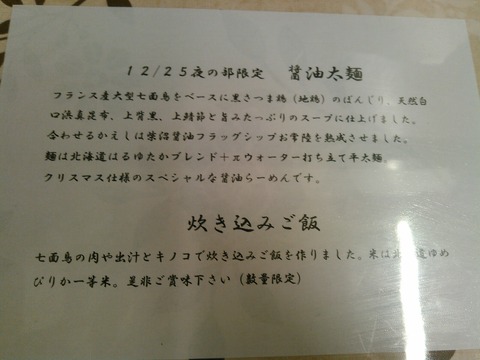 12/25夜の部限定　醤油太麺
フランス産大型七面鳥をベースに黒さつま鶏（地鶏）のぼんじり、天然白
口浜真昆布、上背黒、上鯖節と旨みたっぷりのスープに仕上げました。
合わせるかえしは柴沼醤油フラッグシップお常陸を熟成させました。
麺は北海道はるゆたかブレンド＋πウォーター打ち立て平太麺。
クリスマス仕様のスペシャルな醤油らーめんです。
炊き込みご飯
七面鳥の肉や出汁とキノコで炊き込みご飯を作りました。米は北海道ゆめ
ぴりか一等米。是非ご賞味下さい（数量限定）